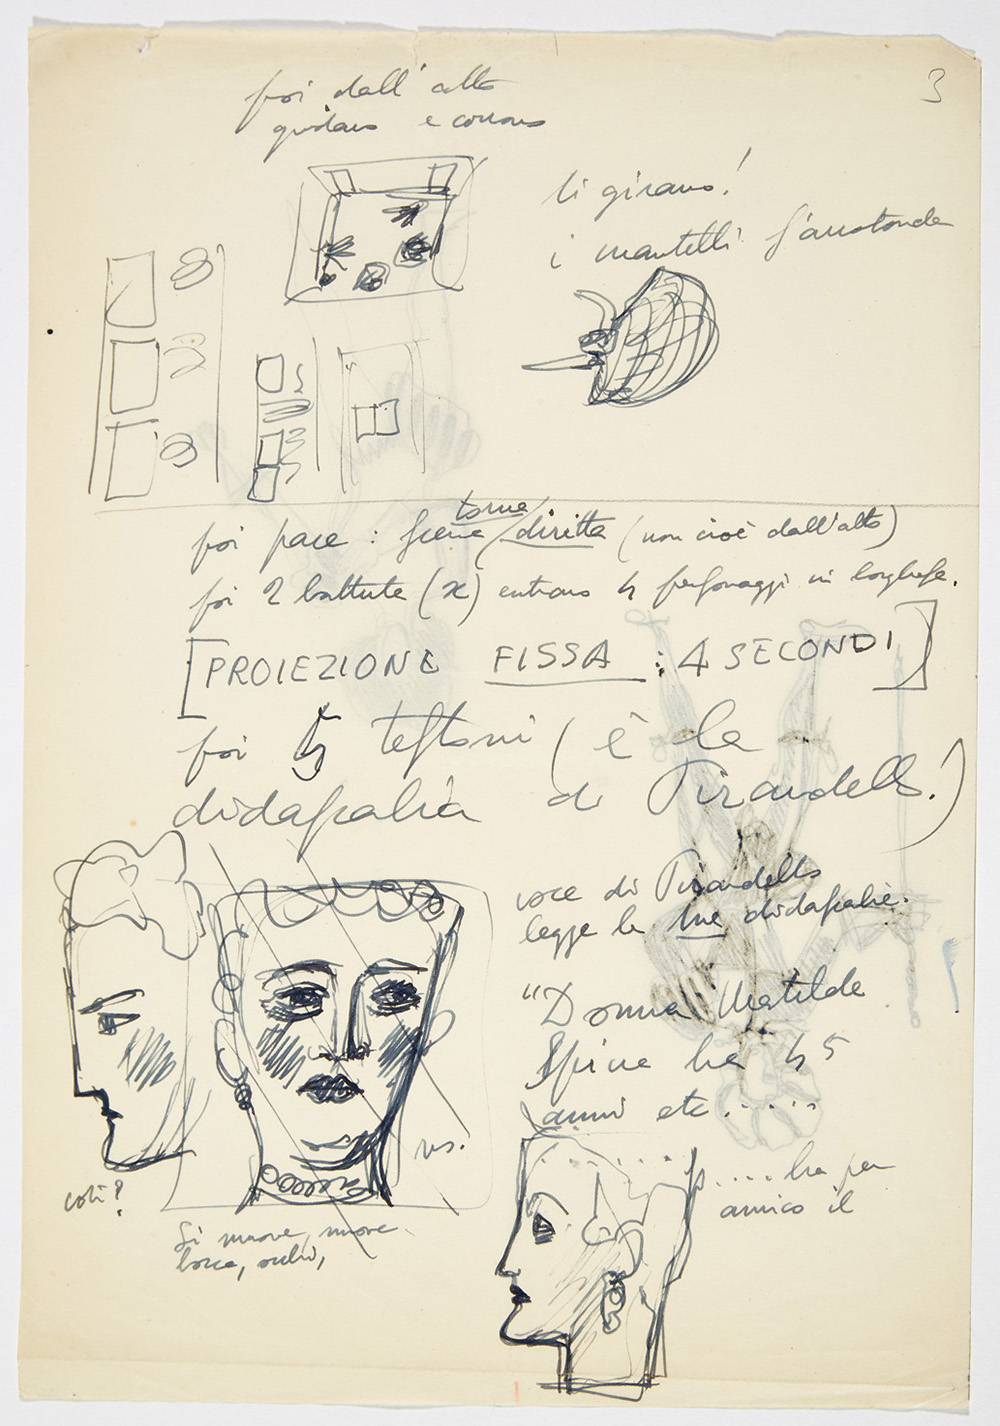 3
poi dall'alto
gridano e corrono
li girano!
i mantelli s'arrotondano
poi pace: scena torna diritta (non cioè dall'alto)
poi 2 battute (x) entrano 4 personaggi in borghese.
[PROIEZIONE FISSA: 4 SECONDI]
poi 5 testoni (è la
didascalia di Pirandello!)
voce di Pirandello
legge le sue didascalie.
"Donna Matilde
Spina ha 45
anni etc.....
così?
no.
Si muove, muove
bocca, occhi,
.... ha per
amico il